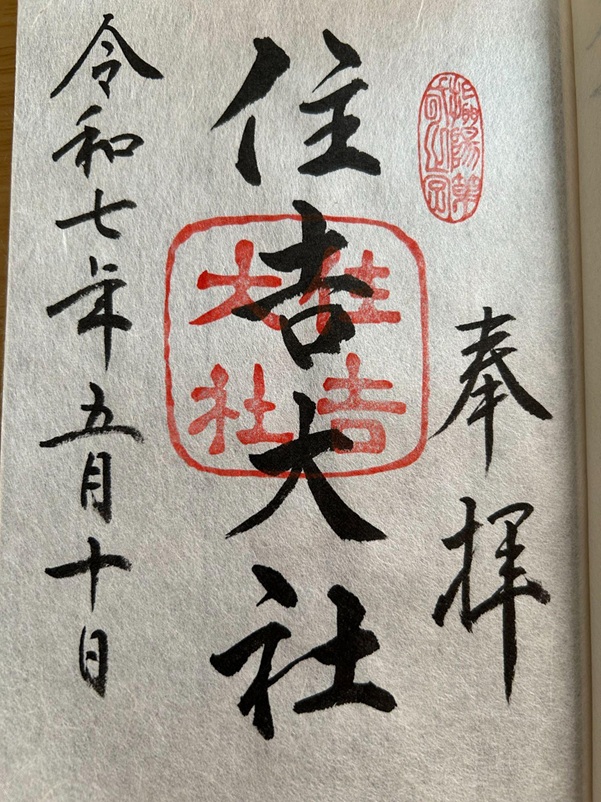 奉拝
住吉大社
住吉
大社
令和七年五月十日